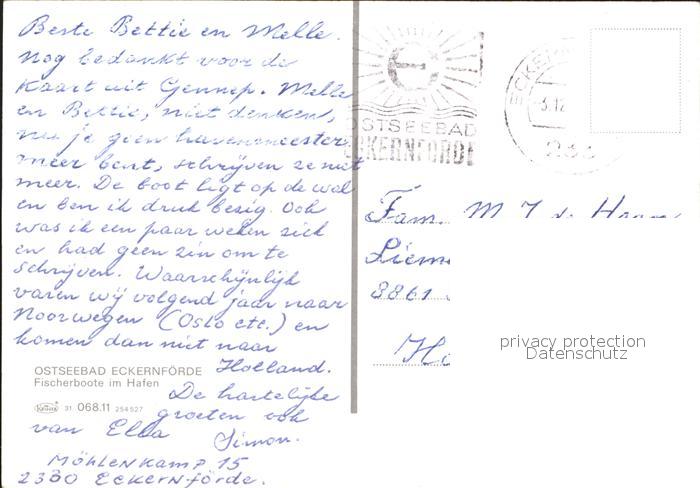 Beste Bettie en Melle.
Nog bedankt voor de
Kaart uit Gennep. Melle
en Bettie, niet denken,
nu je geen havenmeester
meer bent, schrijven ze niet
meer. De boot ligt op de wal
en ben ik druk bezig. Ook
was ik een paar weken ziek
en had geen zin om te
schrijven. Waarschijnlijk
varen wij volgend jaar naar
Noorwegen (Oslo etc.) en
komen dan niet naar
Holland.
De hartelijke
groeten ook
van Elba Simon.
Möhlenkamp 15
2330 Eckernförde.
OSTSEEBAD ECKERNFÖRDE
Fischerboote im Hafen
Krüger 31 068.11 254527
OSTSEEBAD
ECKERNFÖRDE
Fam. M J v.
8861
privacy protection
Datenschutz